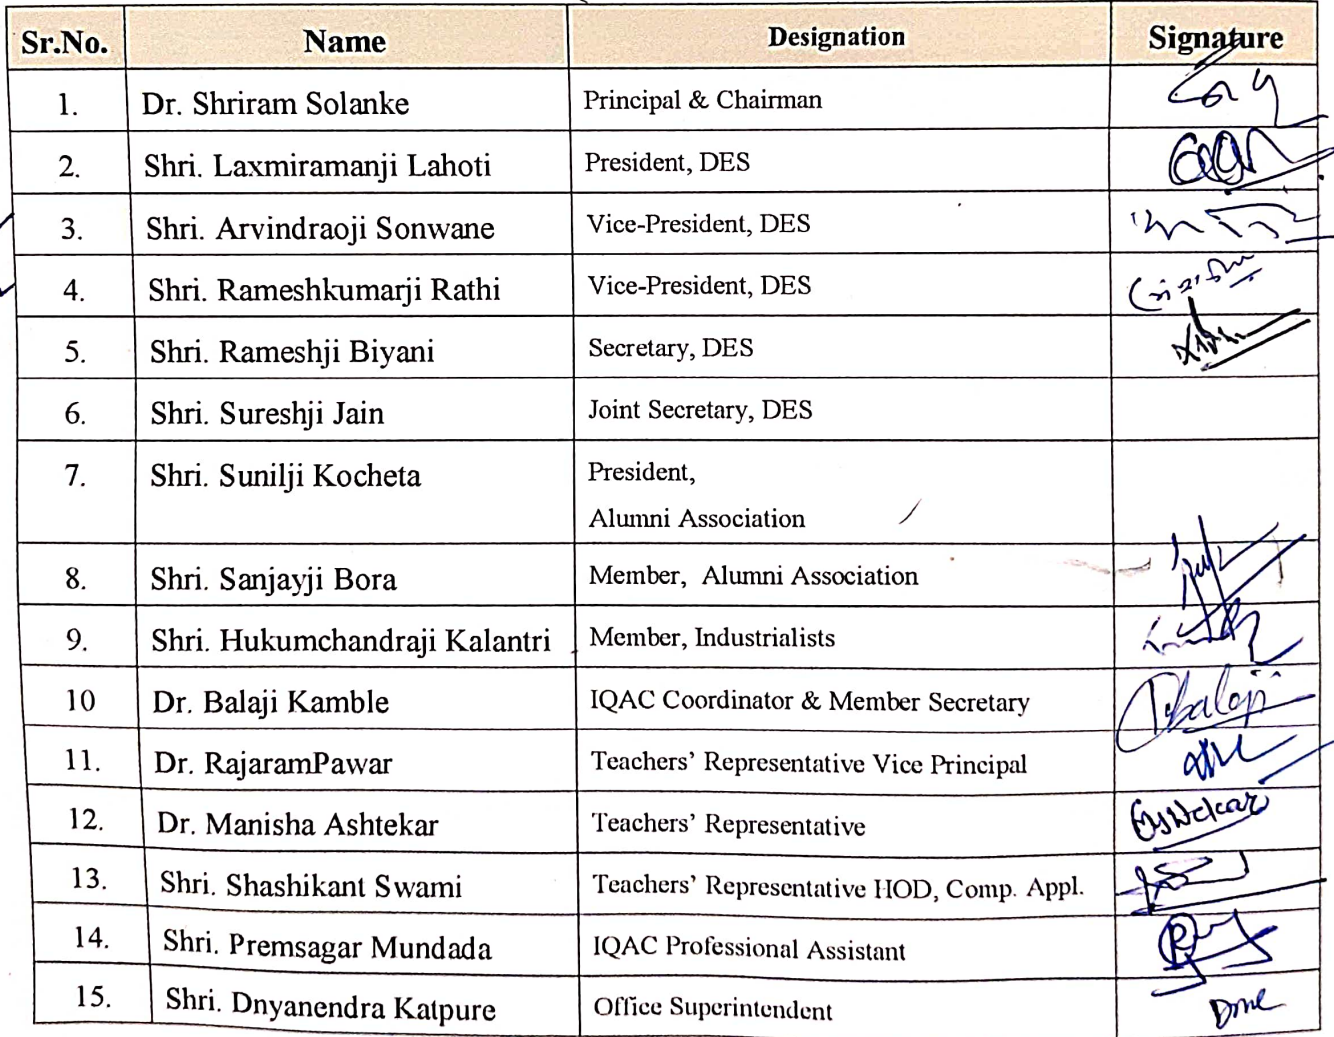 Sr.No. Name Designation Signature
1. Dr. Shriram Solanke Principal & Chairman
2. Shri. Laxmiramanji Lahoti President, DES
3. Shri. Arvindraoji Sonwane Vice-President, DES
4. Shri. Rameshkumarji Rathi Vice-President, DES
5. Shri. Rameshji Biyani Secretary, DES
6. Shri. Sureshji Jain Joint Secretary, DES
7. Shri. Sunilji Kocheta President,
Alumni Association
8. Shri. Sanjayji Bora Member, Alumni Association
9. Shri. Hukumchandraji Kalantri Member, Industrialists
10 Dr. Balaji Kamble IQAC Coordinator & Member Secretary
11. Dr. RajaramPawar Teachers' Representative Vice Principal
12. Dr. Manisha Ashtekar Teachers' Representative
13. Shri. Shashikant Swami Teachers' Representative HOD, Comp. Appl.
14. Shri. Premsagar Mundada IQAC Professional Assistant
15. Shri. Dnyanendra Katpure Office Superintendent